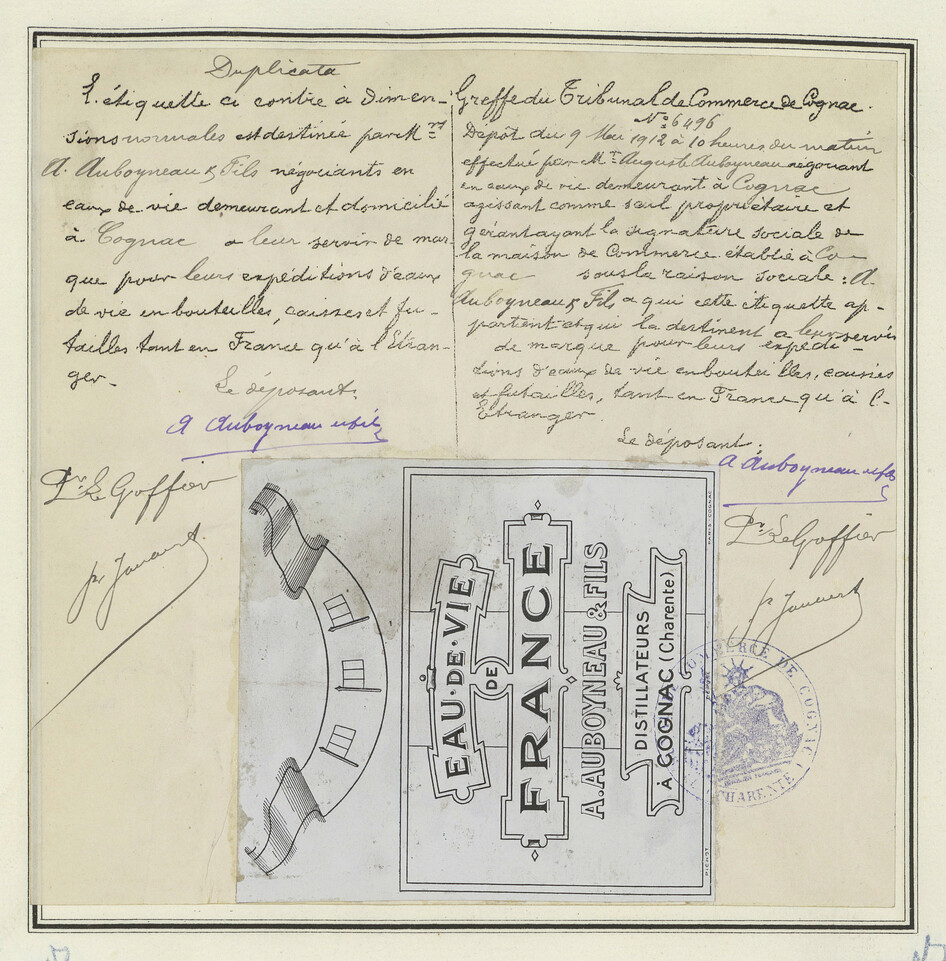 Duplicata
L'étiquette ci contre à dimen-
sions normales est destinée par Mrs
A. Auboyneau & Fils négociants en
eaux de vie demeurant et domicilié
à Cognac a leur servir de mar-
que pour leurs expéditions d'eaux
de vie en bouteilles, caisses et fu-
tailles tant en France qu'à l'Etran-
ger-
Le déposant.
A Auboyneau et fils
Pr Le Greffier
Greffe du Tribunal de Commerce de Cognac.
No 6496
Dépôt du 9 Mai 1912 à 10 heures du matin
effectué par Mr Auguste Auboyneau négociant
en eaux de vie demeurant à Cognac
agissant comme seul propriétaire et
gérant ayant la signature sociale de
la maison de Commerce établie à Co-
gnac sous la raison sociale: A.
Auboyneau & Fils a qui cette étiquette ap-
partient et qui la destinent a leur servir
de marque pour leurs expédi-
tions d'eaux de vie en bouteilles, caisses
et futailles, tant en France qu'à l'-
Etranger
Le déposant.
A Auboyneau et fils
Pr Le Greffier
EAU·DE·VIE
DE
FRANCE
A. AUBOYNEAU & FILS
DISTILLATEURS
À COGNAC (Charente)
PARIS-COGNAC
DÉPOSÉ
COMMERCE DE COGNAC
(CHARENTE)